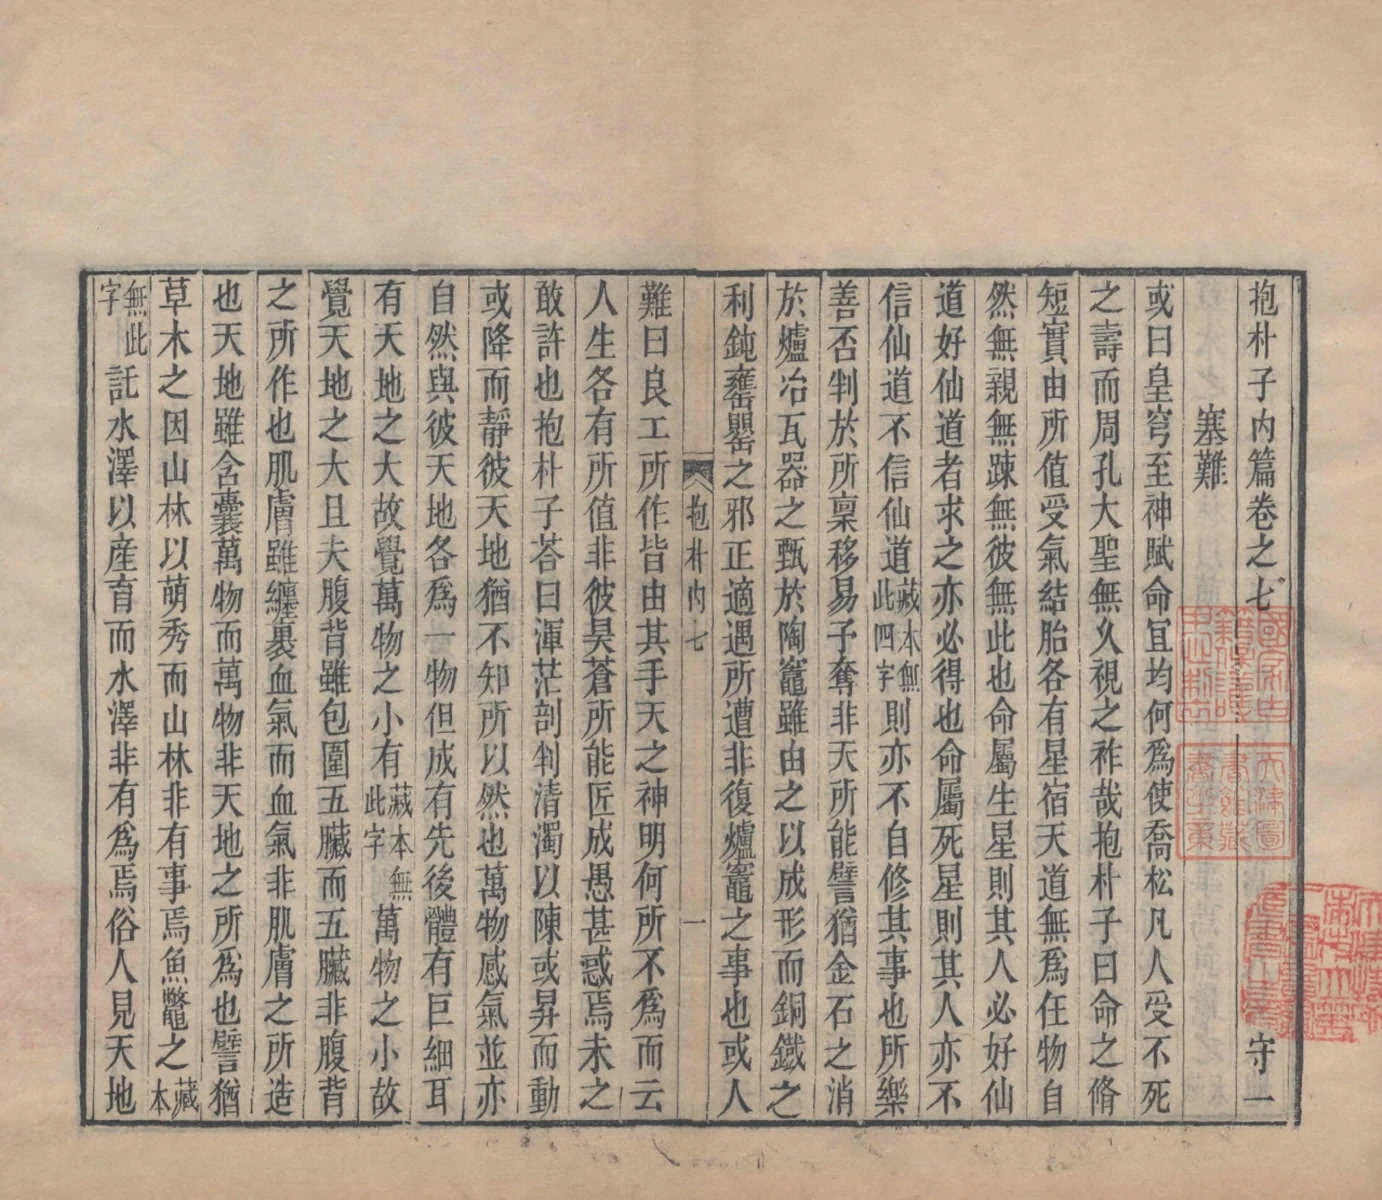 抱朴子内篇卷之七 守一
塞難
或曰皇穹至神賦命冝均何爲使喬松凡人受不死
之壽而周孔大聖無久視之祚哉抱朴子曰命之脩
短實由所值受氣結胎各有星宿天道無爲任物自
然無親無踈無彼無此也命屬生星則其人必好仙
道好仙道者求之亦必得也命屬死星則其人亦不
信仙道不信仙道藏本無此四字則亦不自修其事也所樂
善否判於所稟移易予奪非天所能譬猶金石之消
於爐冶瓦器之甄於陶竈雖由之以成形而銅鐵之
利鈍罋罌之邪正適遇所遭非復爐竈之事也或人
抱朴内七 一
難曰良工所作皆由其手天之神明何所不爲而云
人生各有所值非彼昊蒼所能匠成愚甚惑焉未之
敢許也抱朴子荅曰渾茫剖判清濁以陳或昇而動
或降而靜彼天地猶不知所以然也萬物感氣並亦
自然與彼天地各爲一物但成有先後體有巨細耳
有天地之大故覺萬物之小有藏本無此字萬物之小故
覺天地之大且夫腹背雖包圍五臟而五臟非腹背
之所作也肌膚雖纏裹血氣而血氣非肌膚之所造
也天地雖含囊萬物而萬物非天地之所爲也譬猶
草木之因山林以萌秀而山林非有事焉魚鼈之藏本
無此字託水澤以産育而水澤非有爲焉俗人見天地
天津圖書館藏書之章